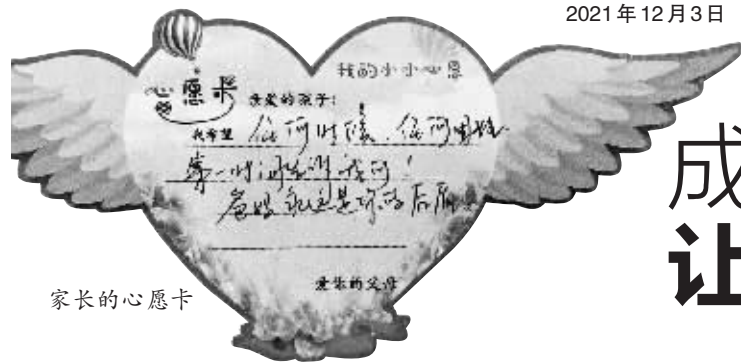 2021年12月3日
我的小小心愿
心愿卡
亲爱的孩子:
我希望 任何时候、任何困难
第一时间告诉我们!
爸妈永远是你的后盾
爱你的父母
家长的心愿卡
成
让